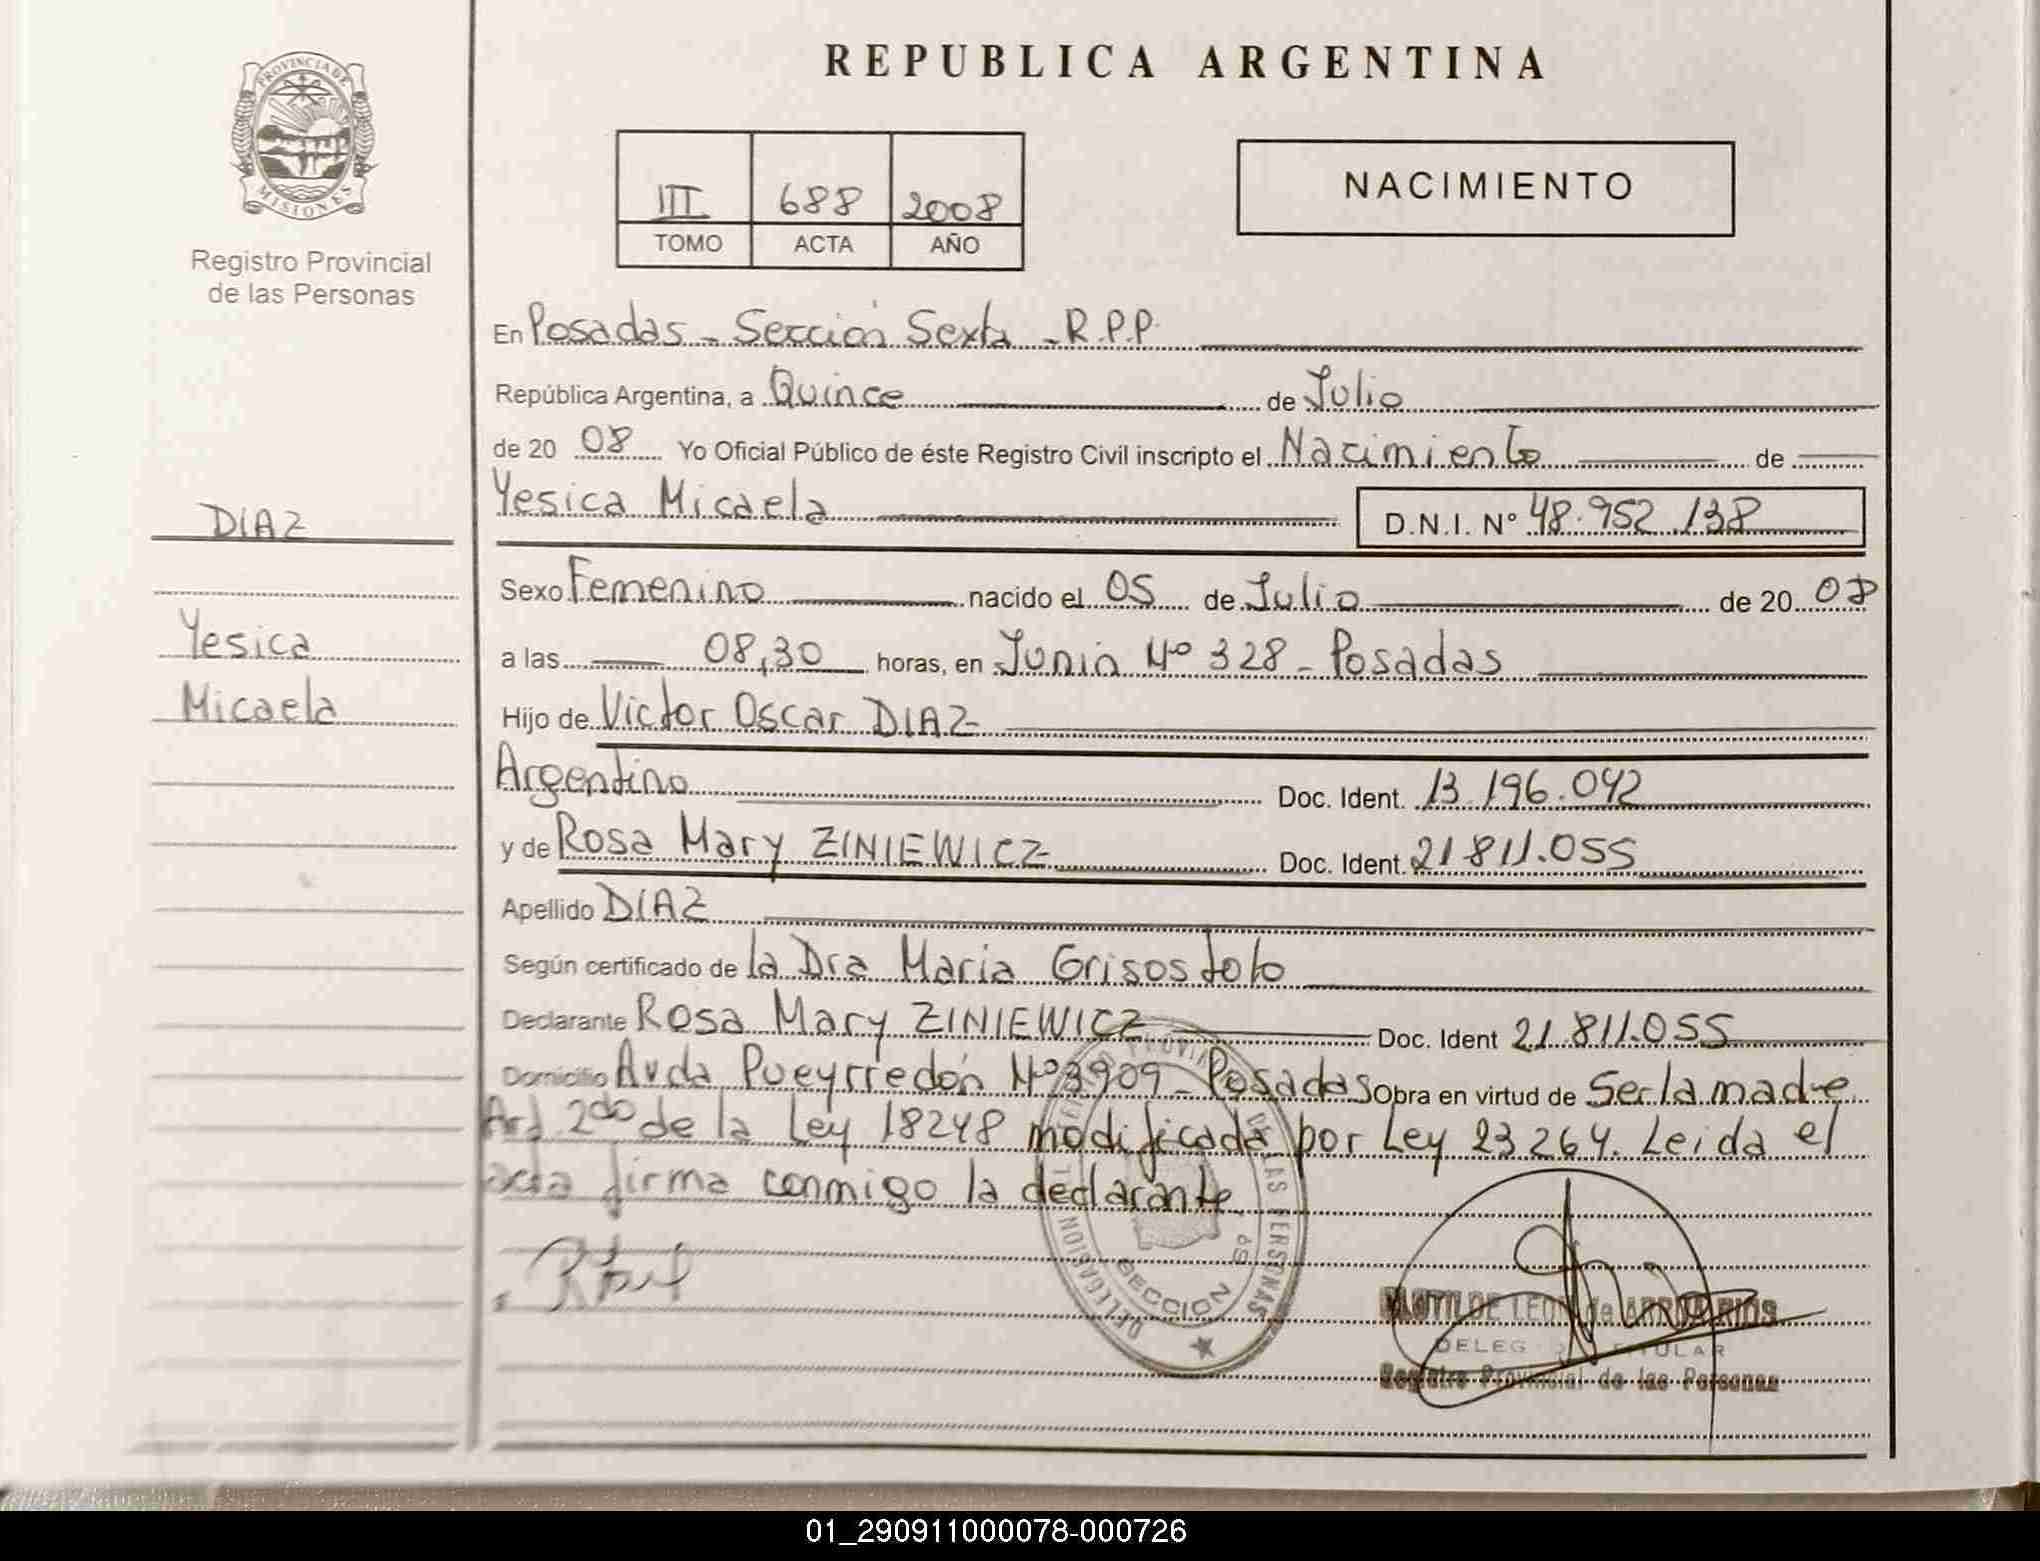 REPUBLICA ARGENTINA
PROVINCIA DE
MISIONES
Registro Provincial
de las Personas
III 688 2008
TOMO ACTA AÑO
NACIMIENTO
DIAZ
Yesica
Micaela
En Posadas - Sección Sexta - R.P.P.
República Argentina, a Quince de Julio
de 20 08 Yo Oficial Público de éste Registro Civil inscripto el Nacimiento de
Yesica Micaela D.N.I. Nº 48.952.138
Sexo Femenino nacido el 05 de Julio de 20 08
a las 08,30 horas, en Junin Nº 328 - Posadas
Hijo de Victor Oscar DIAZ
Argentino Doc. Ident. 13.196.042
y de Rosa Mary ZINIEWICZ Doc. Ident. 21.811.055
Apellido DIAZ
Según certificado de la Dra Maria
Declarante Rosa Mary ZINIEWICZ Doc. Ident 21.811.055
Domicilio Avda Pueyrredón Nº 3909 - Posadas Obra en virtud de Ser la madre
Art 2do de la Ley 18248 modificada por Ley 23.264. Leida el
acta firma conmigo la declarante.
DE LAS PERSONAS
DELEGACION
SECCION
DELEG TITULAR
Registro Provincial de las Personas
01_290911000078-000726